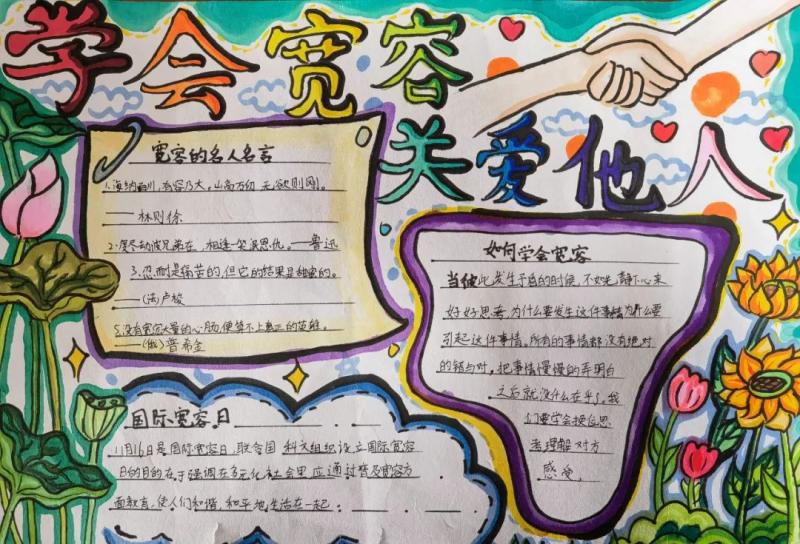 学会宽容
关爱他人
宽容的名人名言
1.海纳百川有容乃大,山高万仞 无欲则刚。
——林则徐
2.度尽劫波兄弟在,相逢一笑泯恩仇。——鲁迅
3.忍耐是痛苦的,但它的结果是甜蜜的。
——(法)卢梭
5.没有宽宏大量的心肠,便算不上真正的英雄。
——(俄)普希金
如何学会宽容
当彼此发生矛盾的时候,不如先静下心来
好好思考,为什么要发生这件事情为什么要
引起这件事情。所有的事情都没有绝对
的错与对。把事情慢慢的弄明白
之后就没什么在乎了。我
们要学会换位思
考理解对方
感受。
国际宽容日
11月16日是国际宽容日,联合国 科文组织设立国际宽容
日的目的在于强调在多元化社会里应通过普及宽容方
面教育,使人们和谐、和平地生活在一起。